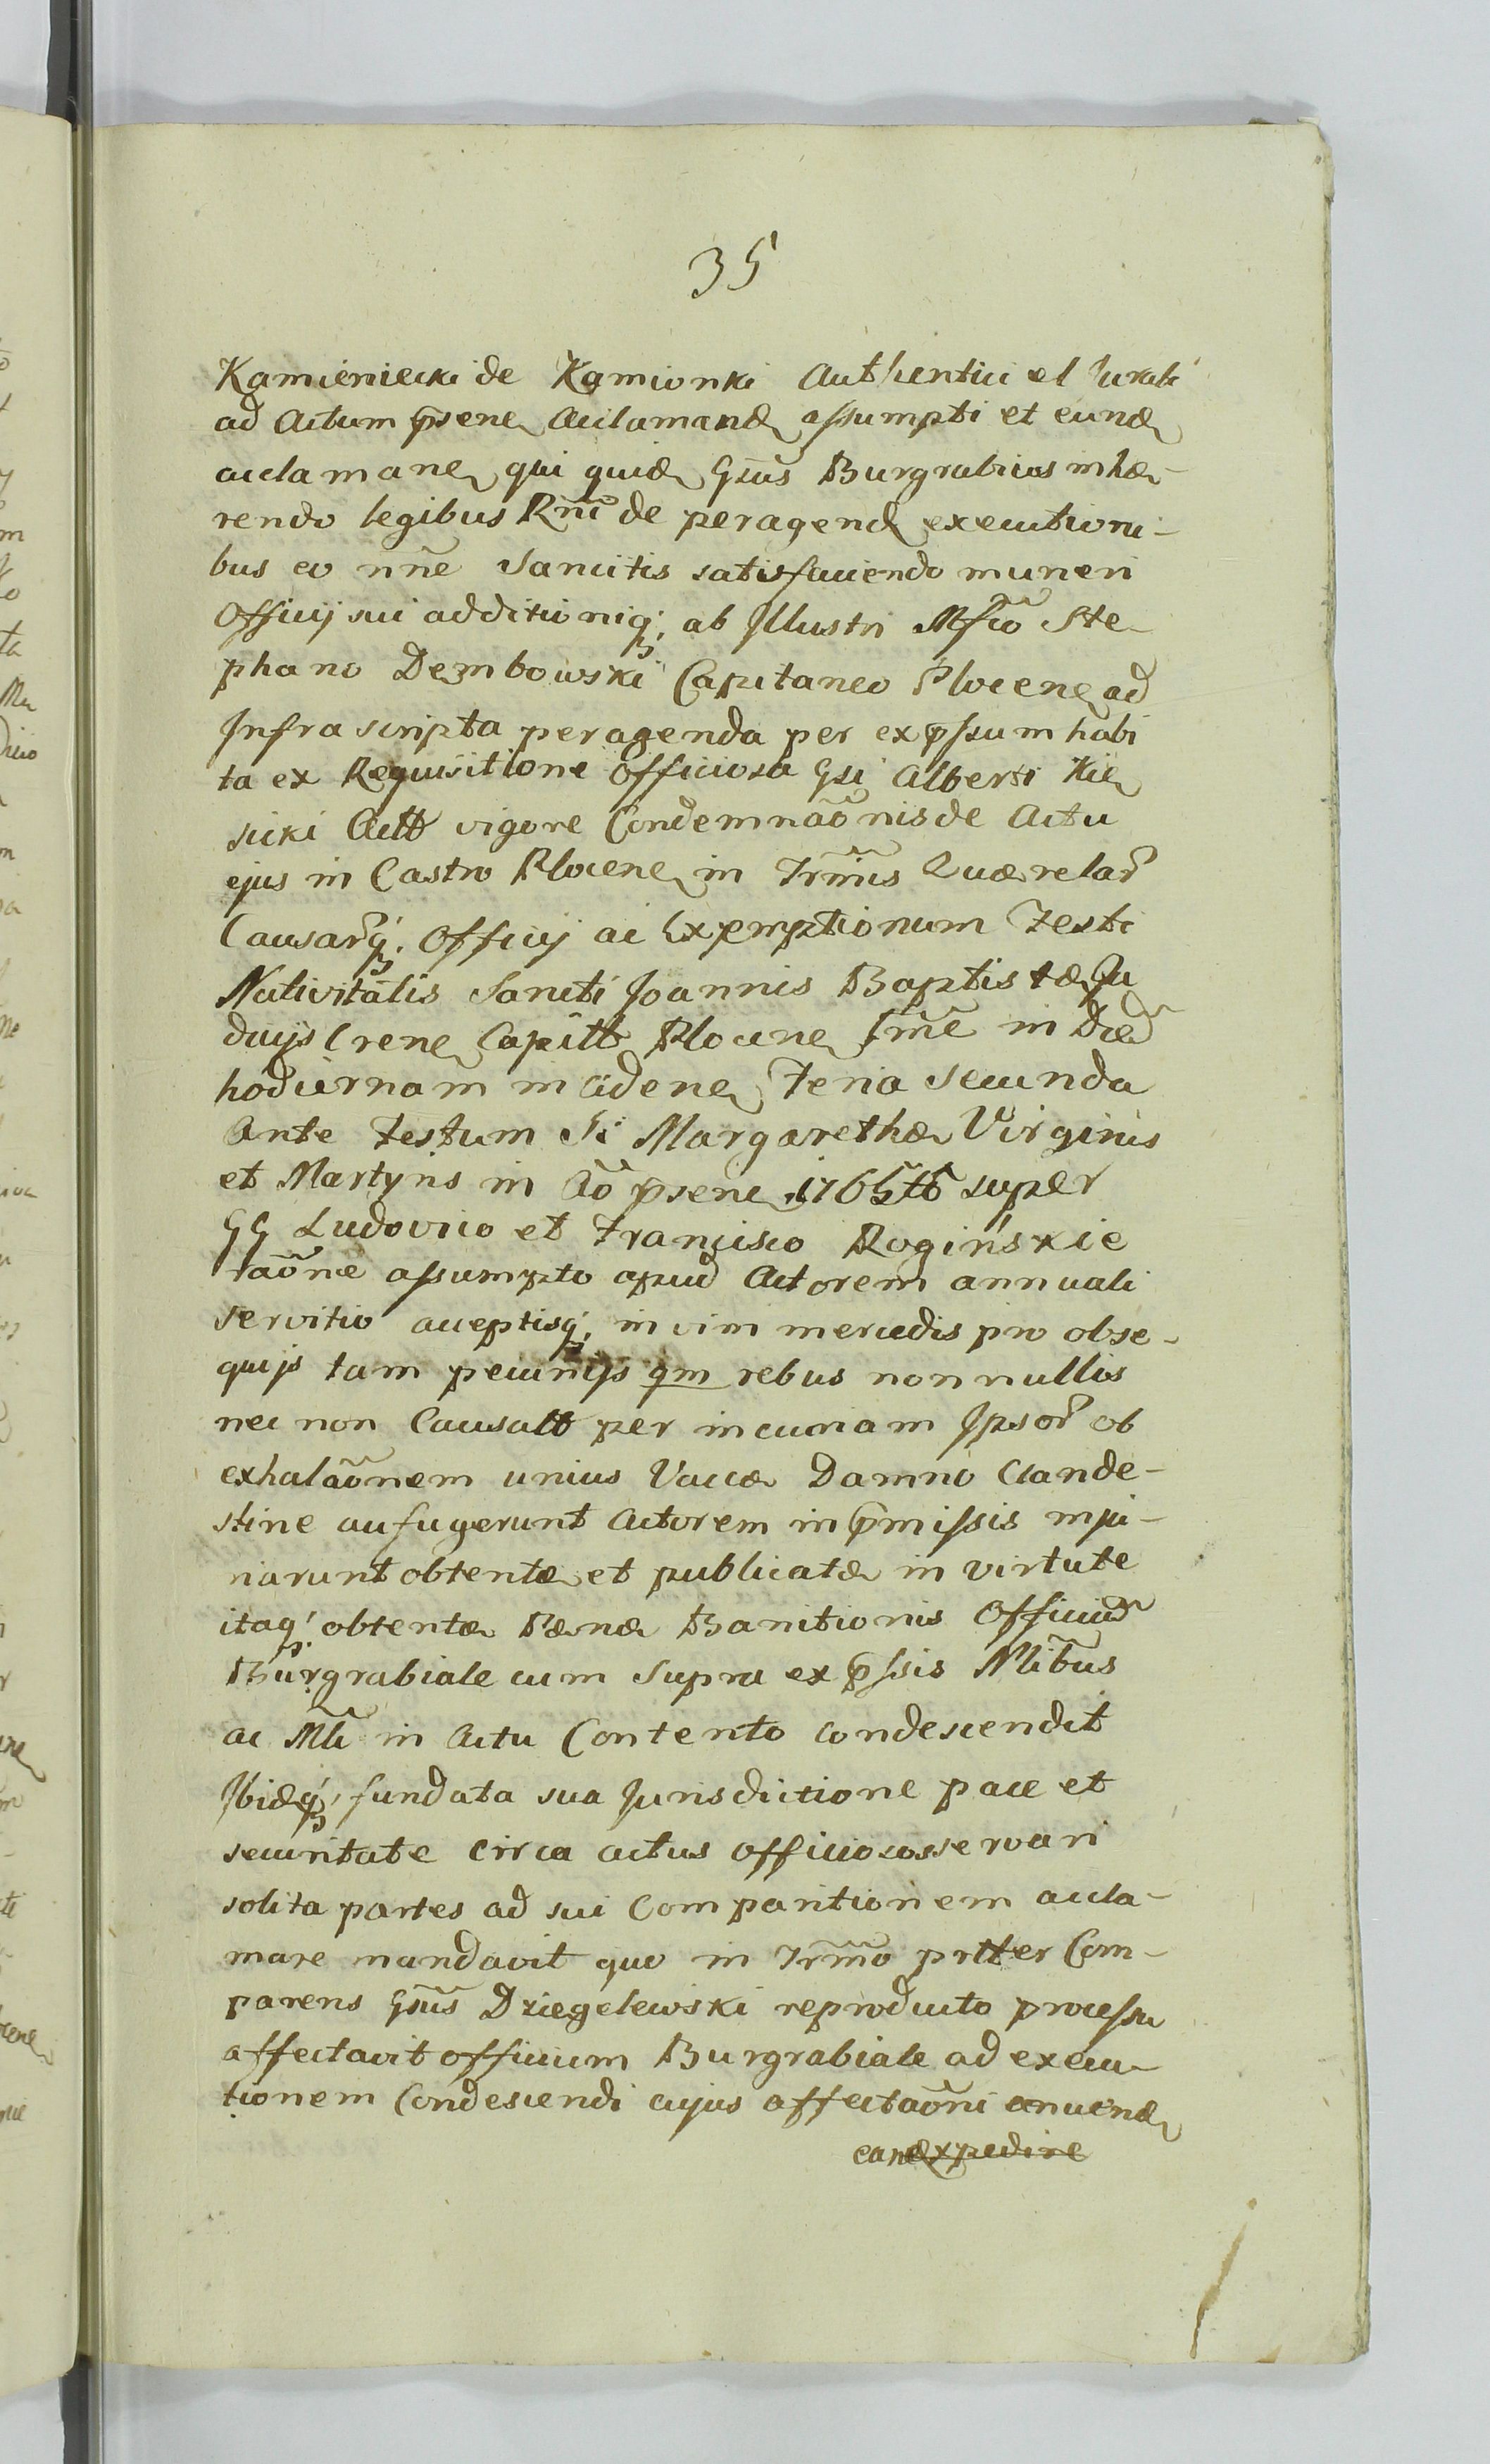 35
Kamieniecki de Kamionki Authentici et Jurati
ad Actum p̃sene Acclamand assumpti et eund
acclamane qui quid Gs̃us Burgrabius inhæ-
rendo legibus Rñi de peragend executioni-
bus eo nñe Sancitis satisfaciendo muneri
Officij sui additioniq; ab Illustri Mf̃co Ste-
phano Dembowski Capitaneo Plocene ad
Infra scripta peragenda per exp̃ssum habi
ta ex Requisitione officiosa Gsi Alberti Kie
sicki Actt vigore Condemnãonis de Actu
ejus in Castro Plocene in Trm̃is Quærelar̃
Causar̃q; Officij ac Exemptionum Festi
Nativitatis Sancti Joannis Baptistæ Ju
dicijs Crene Capitt Plocene fm̃e in Died̃
hodiernam incidene Feria Secunda
Ante Festum Sæ Margarethæ Virginis
et Martyris in Aõ p̃sene 1765to super
GG Ludovico et Francisco Rogińskie
rãone assumpto apud Actorem annuali
servitio acceptisq; in vim mercedis pro obse-
quijs tam pecunijs qm rebus nonnullis
nec non Causatt per incuriam Ipsor̃ ob
exhalãonem unius Vaccæ Damno Clande-
stine aufugerunt Actorem in p̃missis inju-
riarunt obtentæ et publicatæ in virtute
itaq; obtentæ Pænæ Banitionis Officium̃
Burgrabiale cum Supra exp̃ssis Nl̃ibus
ac Ml̃i in Actu Contento condescendit
Ibidq; fundata sua Jurisdictione pace et
securitate circa actus officiosos servari
solita partes ad sui Comparitionem accla-
mare mandavit quo in Trm̃o prtter Com-
parens Gs̃us Dziegelewski reproducto processu
affectavit officium Burgrabiale ad execu-
tionem Condescendi cujus affectãoni anuend
eand expedire